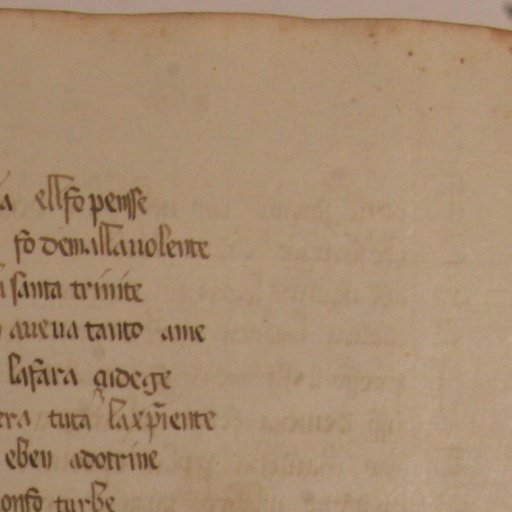 a ellso pensse
fo de mallauolente
santa trinite
aueua tanto ame
lasara qidege
era tuta laxp̄iente
eben adotrine
onso turbe